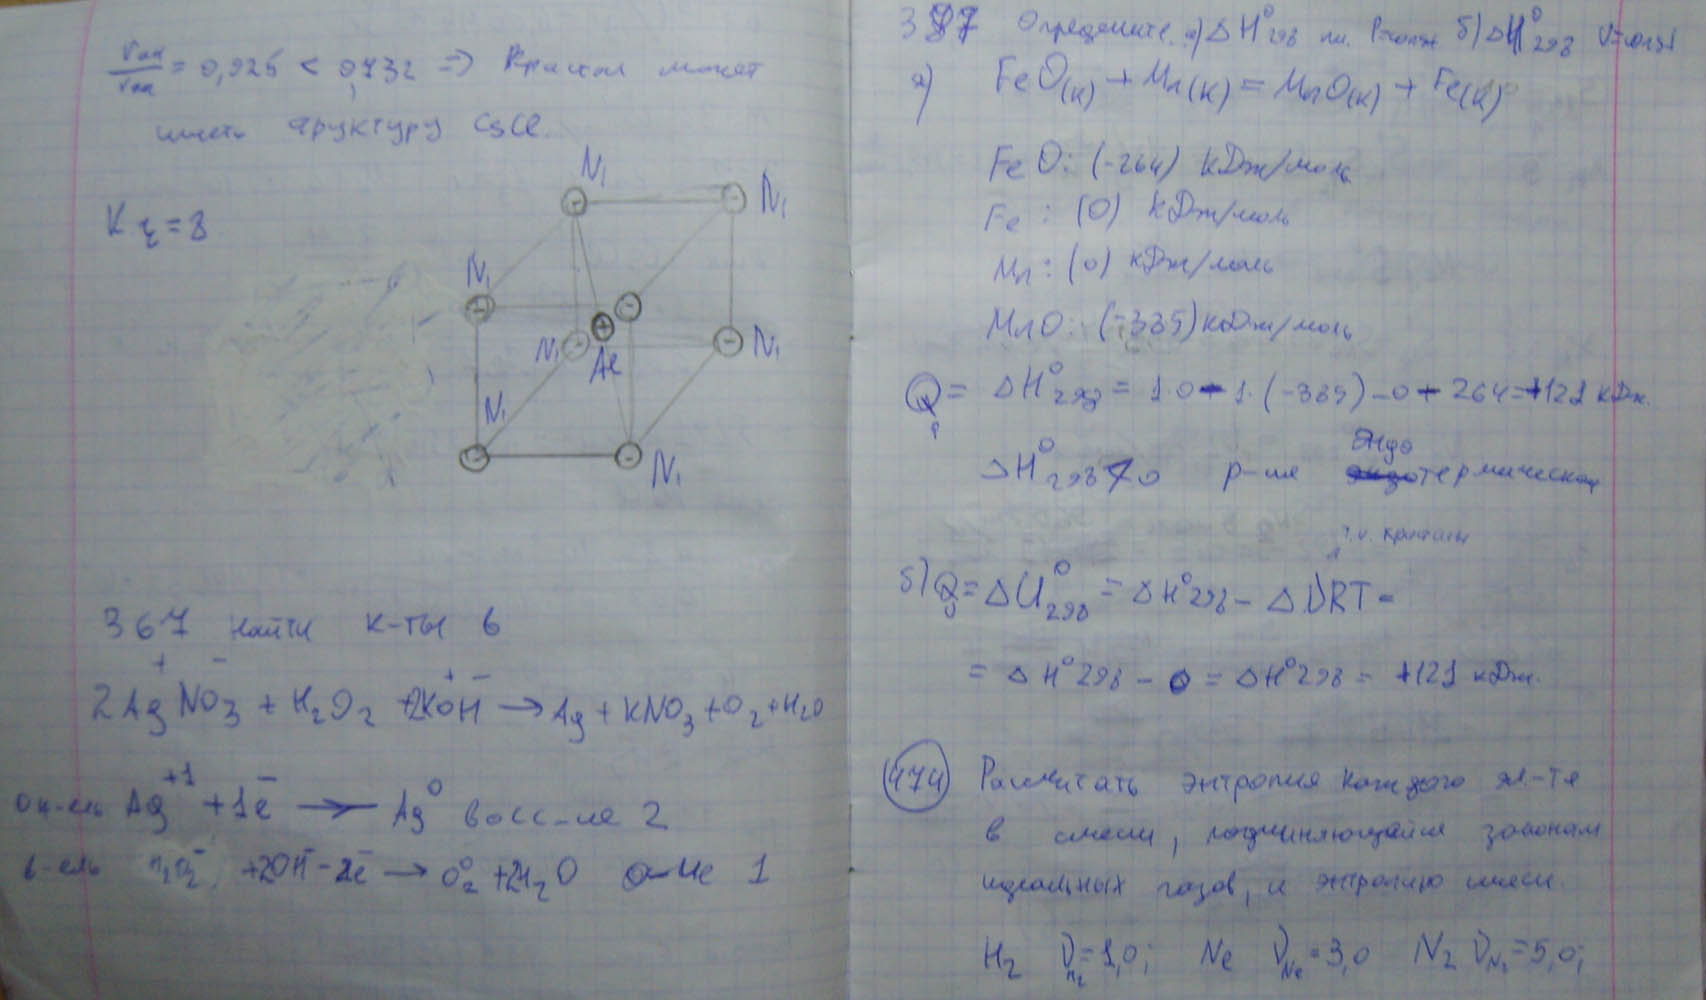 = 0,925 < 0,732 ⇒ Кристалл может
иметь структуру CsCl.
Кч = 8
Ni
Ni
Ni
Ni
Ni
Al
Ni
Ni
367 найти к-ты в
+ - + -
2AgNO3 + H2O2 + 2KOH → Ag + KNO3 + O2 + H2O
ок-ель Ag+1 + 1e- → Ag0 восс-ие 2
в-ель H2O2 + 2OH- - 2e- → O2 0 + 2H2O о-ие 1
387 Определите а) ΔH°298 пр. P=const б) ΔH°298 V=const
а) FeO(к) + Mn(к) = MnO(к) + Fe(к)
FeO: (-264) кДж/моль
Fe: (0) кДж/моль
Mn: (0) кДж/моль
MnO: (-385) кДж/моль
Qp = ΔH°298 = 1·0 - 1·(-385) - 0 + 264 = +121 кДж.
эндо
ΔH°298 > 0 р-ия термическая
т.к. кристаллы
б) Qv = ΔU°298 = ΔH°298 - ΔνRT =
= ΔH°298 - 0 = ΔH°298 = +121 кДж.
474 Рассчитать энтропия каждого эл-та
в смеси, подчиняющейся законам
идеальных газов, и энтропию смеси.
H2 νH2 = 1,0; Ne νNe = 3,0 N2 νN2 = 5,0;